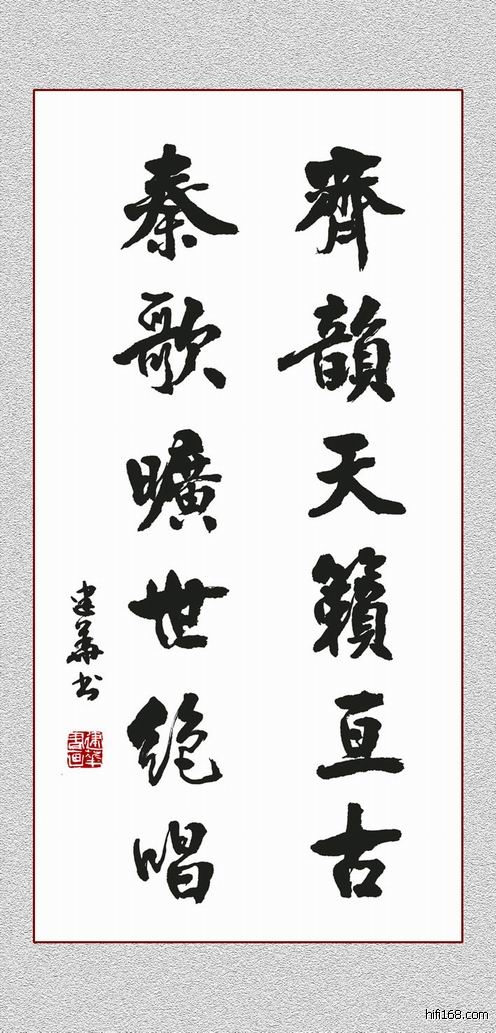 齊韻天籟亘古
秦歌曠世絶唱
建華书
建華書画
hifi168.com